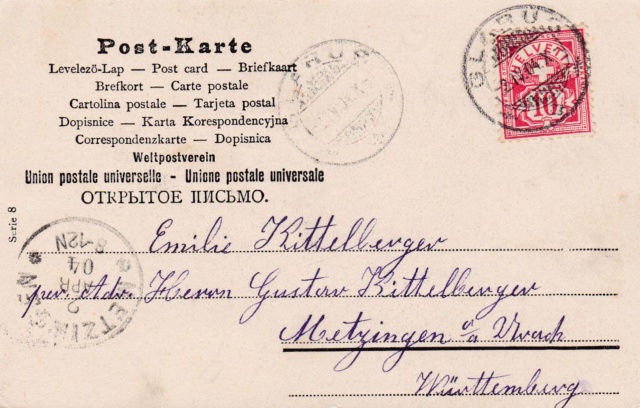 Post-Karte
Levelező-Lap — Post card — Briefkaart
Brefkort — Carte postale
Cartolina postale — Tarjeta postal
Dopisnice — Karta Korespondencyjna
Correspondenzkarte — Dopisnica
Weltpostverein
Union postale universelle - Unione postale universale
ОТКРЫТОЕ ПИСЬМО.
Serie 8
GLARUS
GLARUS
HELVETIA
10
METZINGEN
2 APR 04
8-12N
Emilie Kittelberger
per Adr. Herrn Gustav Kittelberger
Metzingen o/a Urach
Württemberg